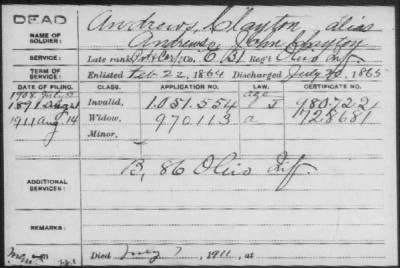 DEAD
NAME OF SOLDIER: Andrews, Clayton, alias
Andrews, John Clayton
SERVICE: Late rank, Co. E, Reg't Ohio Inf
TERM OF SERVICE: Enlisted Feb 22, 1864 Discharged July 20, 1865
DATE OF FILING. CLASS. APPLICATION NO. LAW. CERTIFICATE NO.
1908 July age
1891 Aug Invalid, 1.051.554 480.722
1911 Aug 14 Widow, 970113 a 728681
Minor,
ADDITIONAL SERVICES: B, 86 Ohio Inf.
REMARKS:
Died July 7, 1911, at